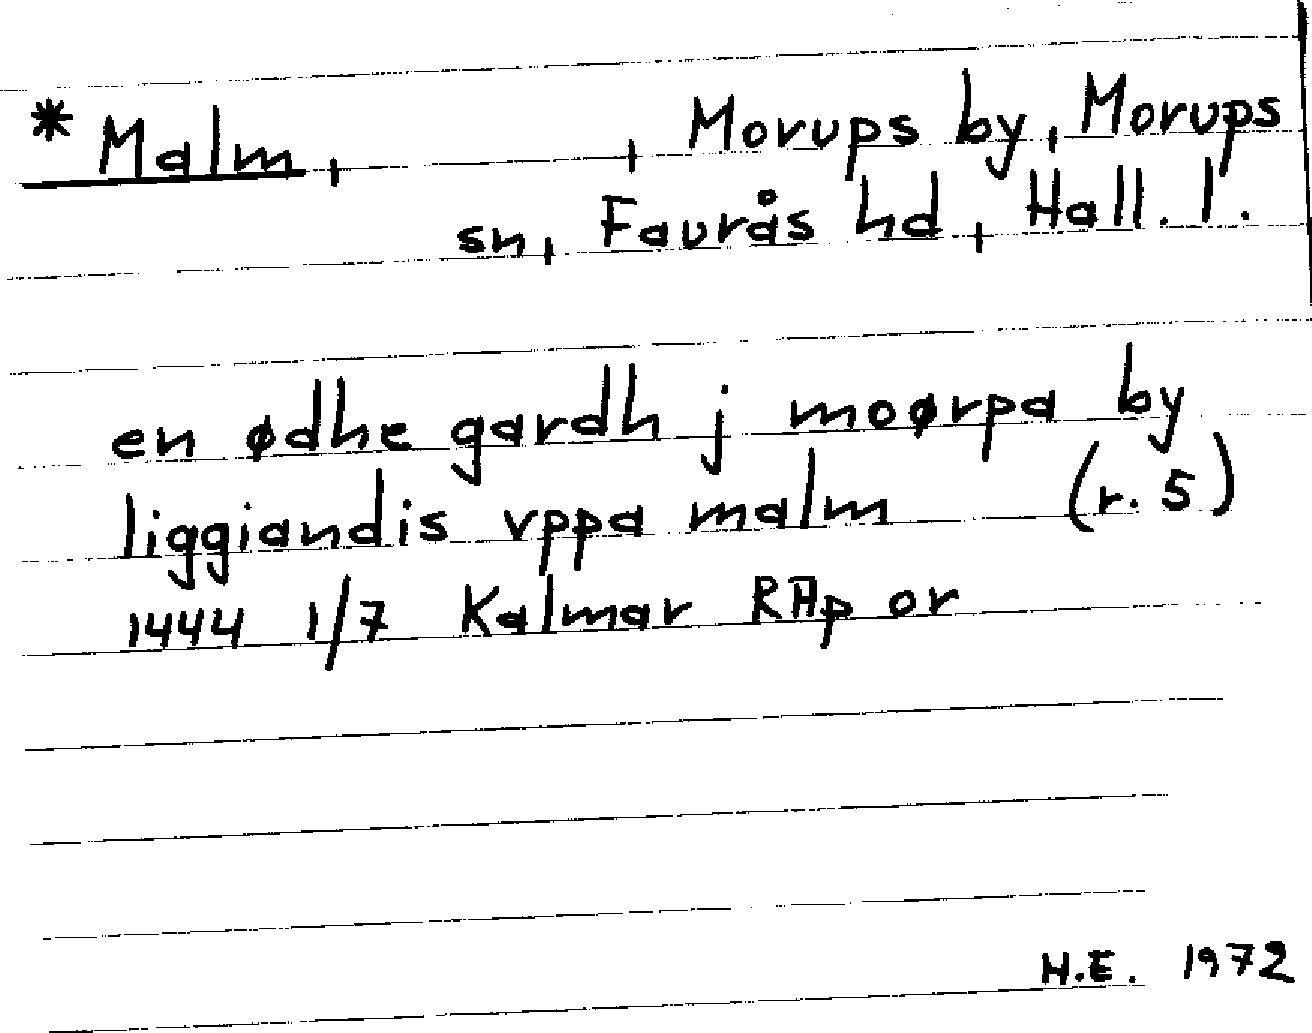 * Malm, , Morups by, Morups
sn, Faurås hd, Hall. l.
en ødhe gardh j moørpa by
liggiandis vppa malm (r. 5)
1444 1/7 Kalmar RAp or
H.E. 1972